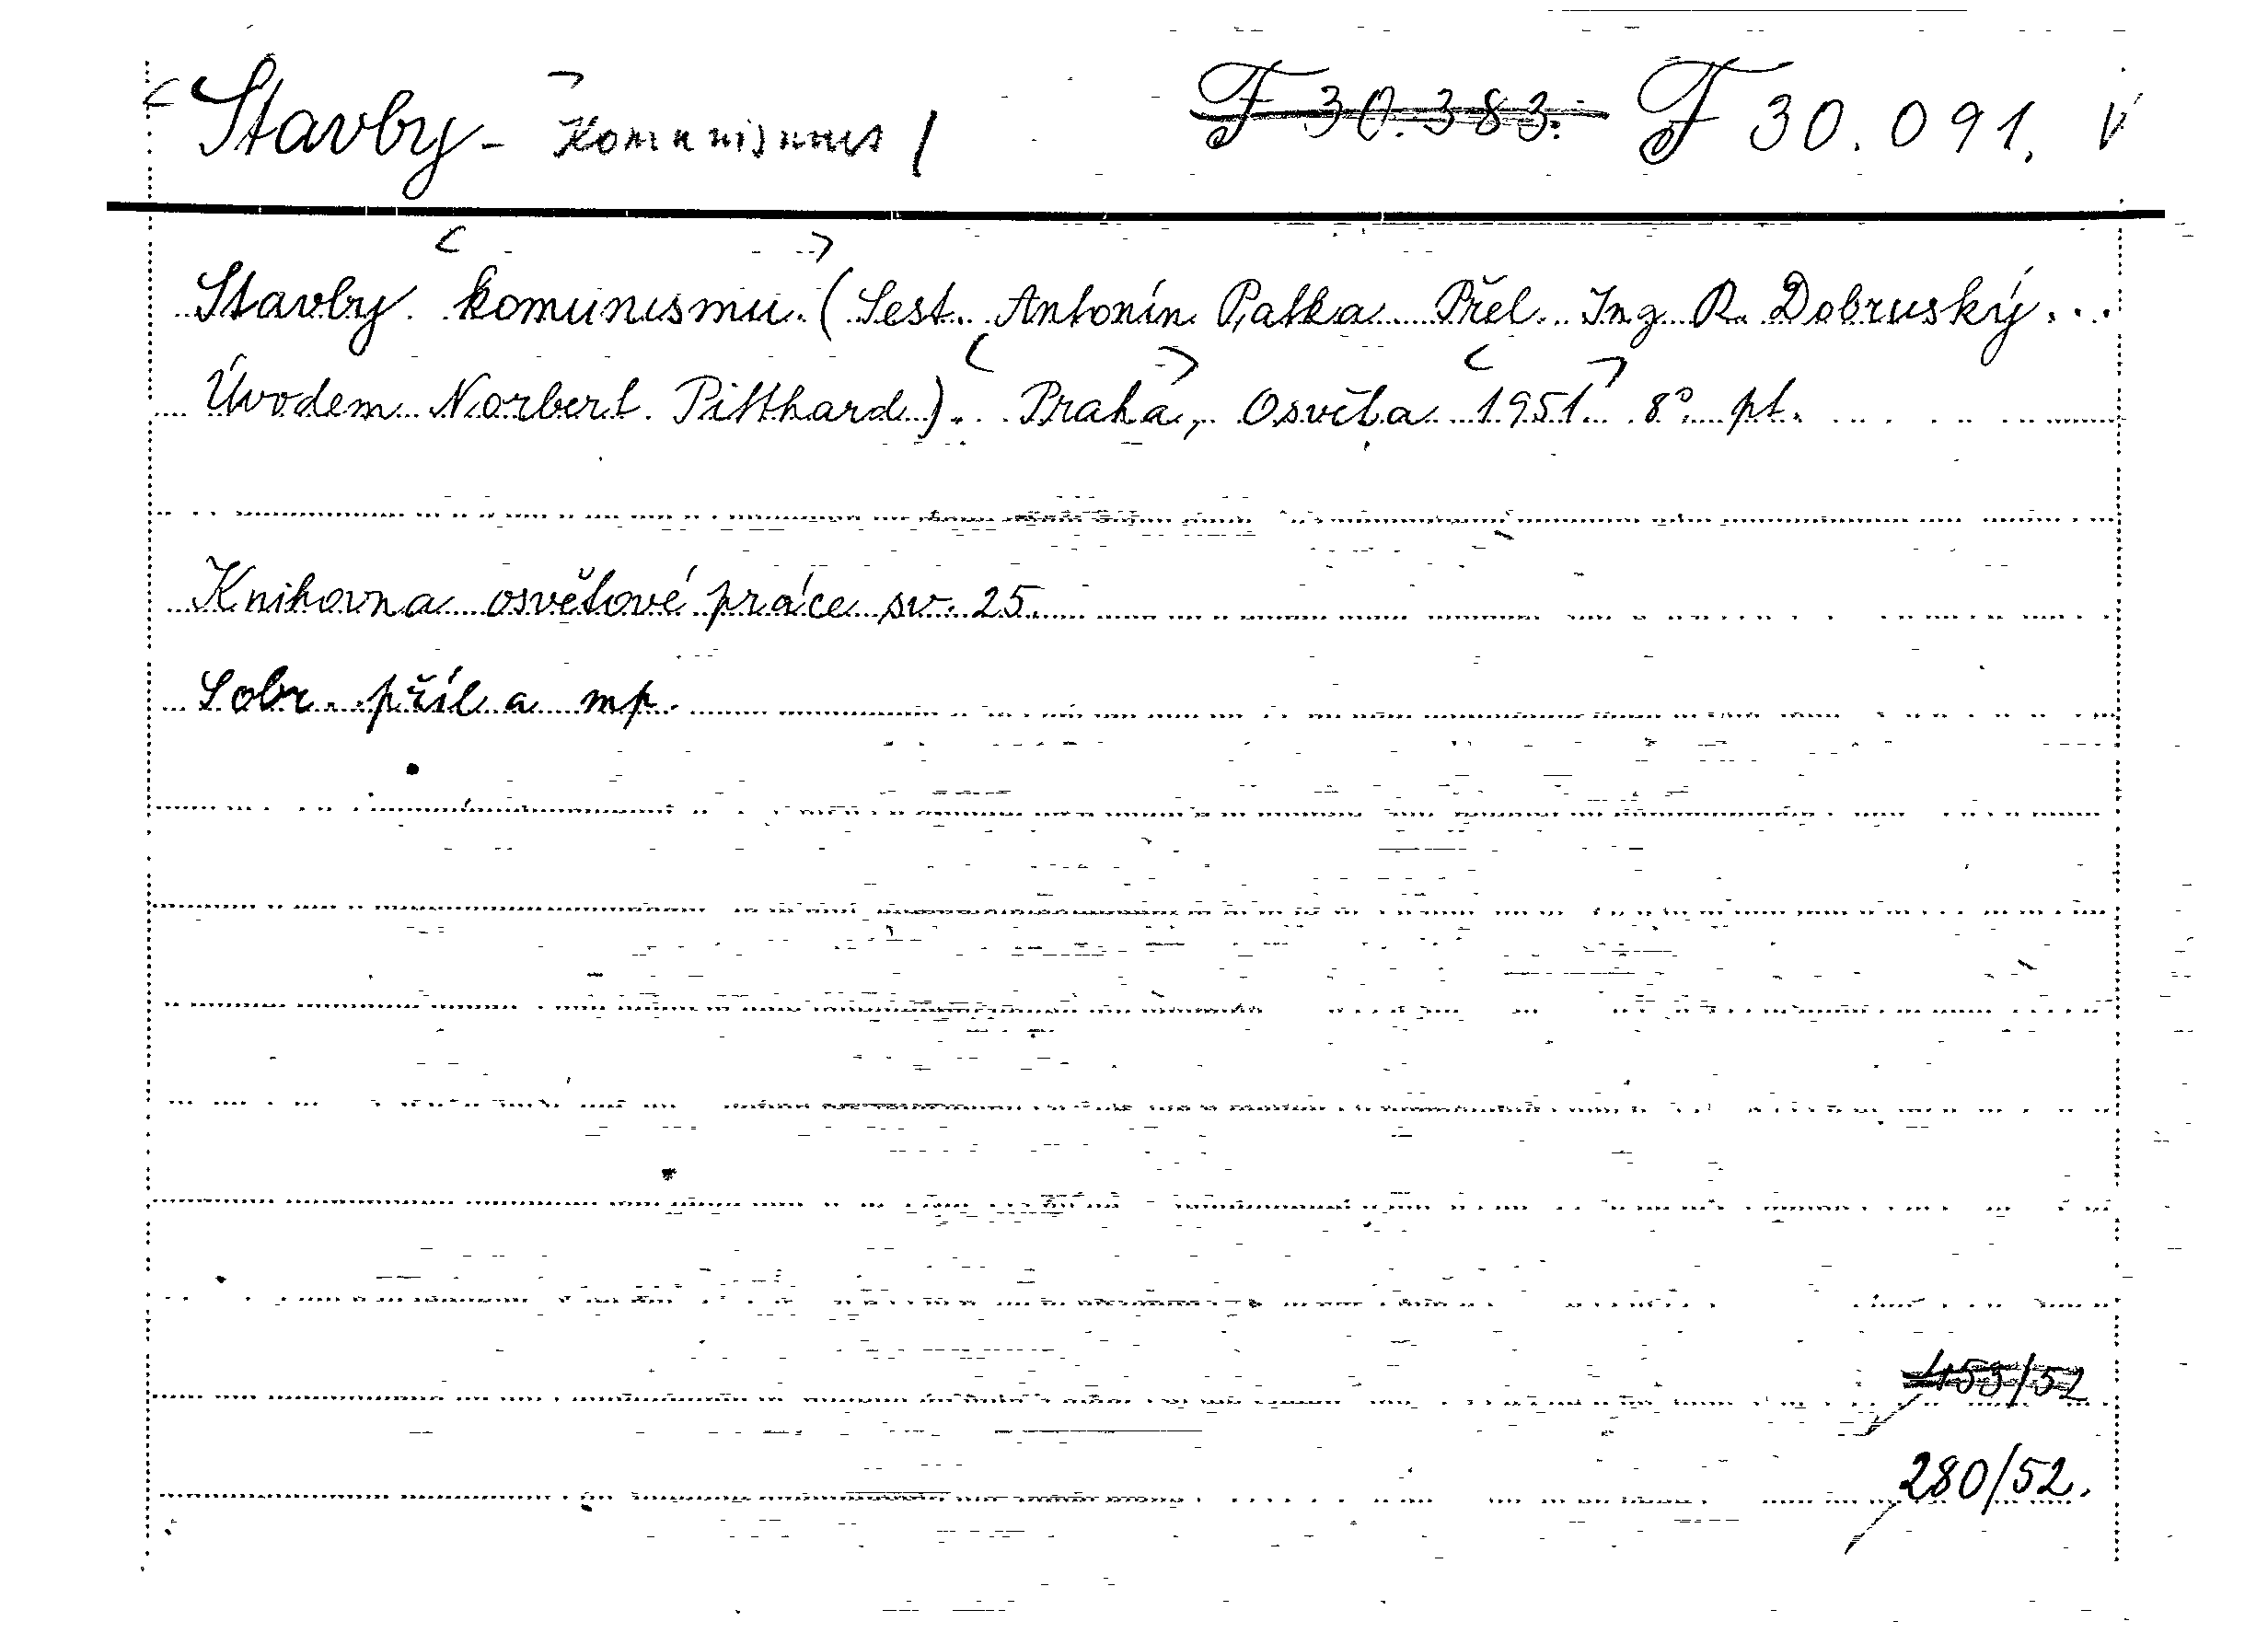 Stavby - Komunismus / F 30.383. F 30.091. V
Stavby komunismu. (Sest. Antonín Patka Přel. Ing R. Dobruský...
Úvodem Norbert Pitthard). Praha, Osvěta 1951 8° pt.
Knihovna osvětové práce sv. 25.
S obr. příl a mp.
153/52
280/52.